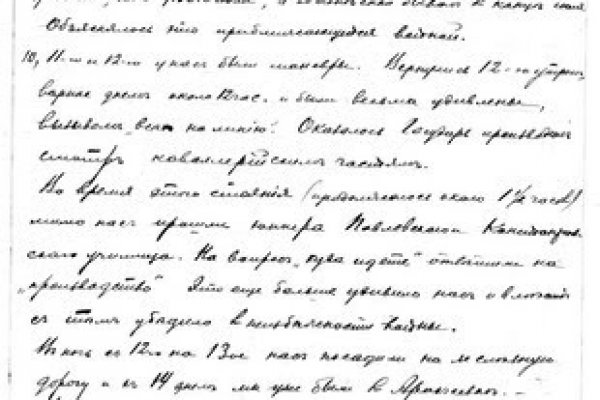 Объяснялось это приближающейся войной.
10, 11-го и 12-го у нас были маневры. Вернулись 12-го утром,
вернее днем около 12 час. и были весьма удивлены,
вызовом „всех на линию“. Оказалось Государь производил
смотр кавалерийским частям.
Во время этого стояния (продолжалось около 1½ часов)
мимо нас прошли юнкера Павловского
училища. На вопрос „куда идете“ отвечали на
„производство“ Это еще больше удивило нас и
с тем убедило в неизбежности войны.
В ночь с 12го на 13ое нас посадили на железную
дорогу и 14 днем мы уже были в